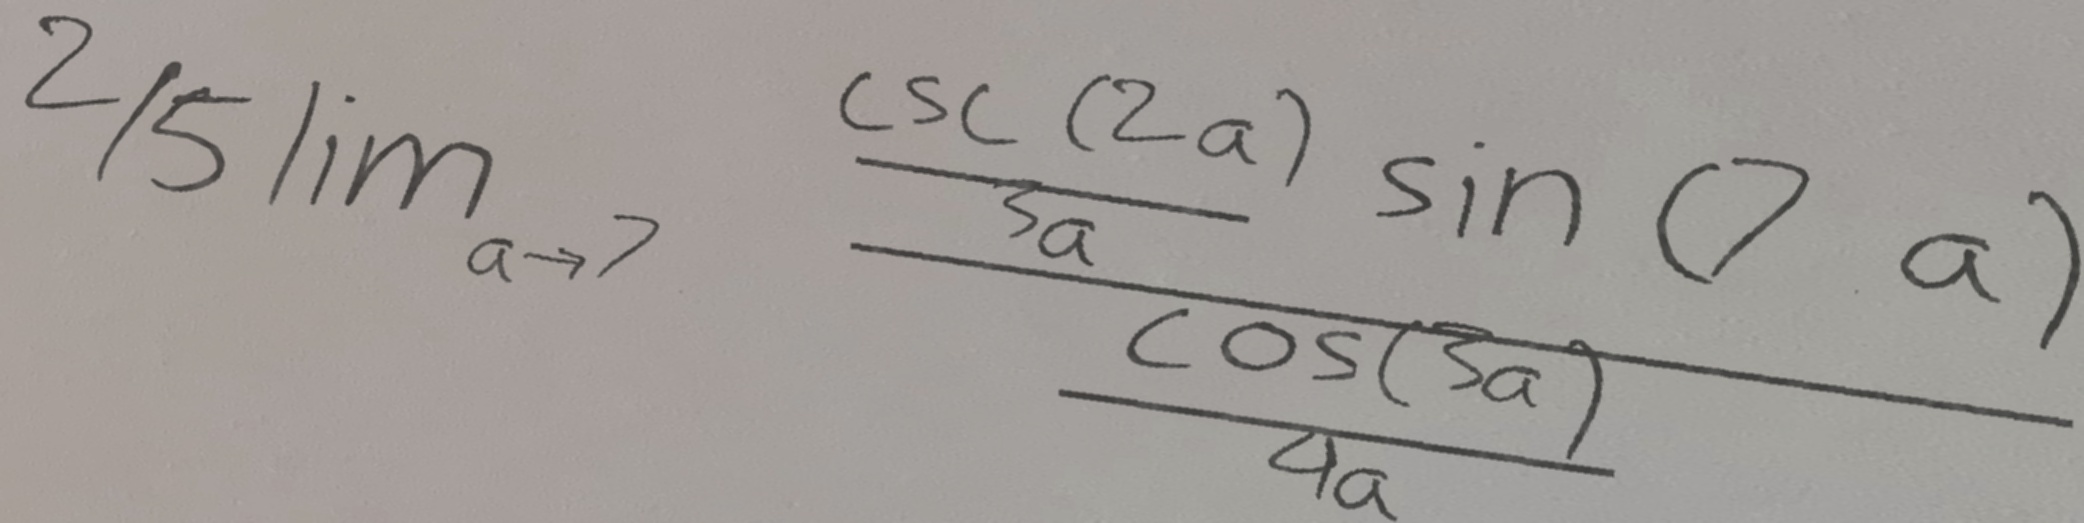 2/5 lim a→7 ((csc(2a)/5a) sin(7a))/(cos(5a)/4a)